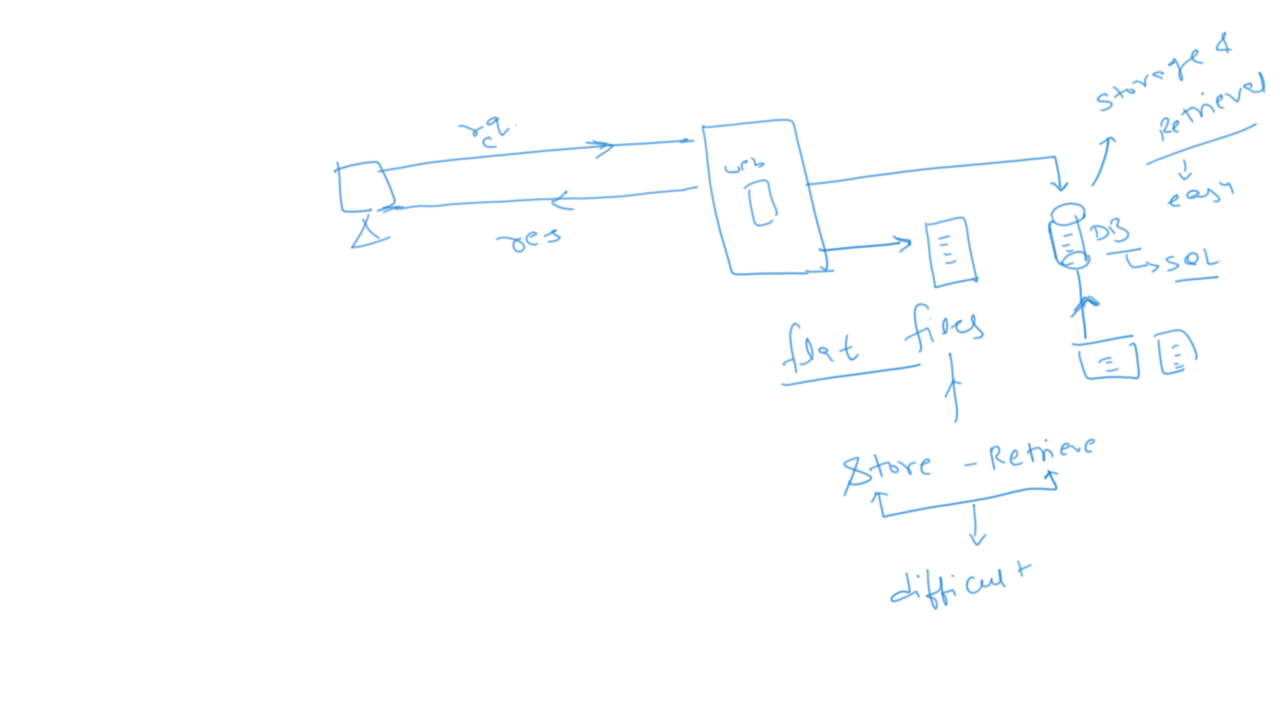 req
res
web
storage &
Retrieval
easy
DB
SQL
flat files
Store - Retrieve
difficult